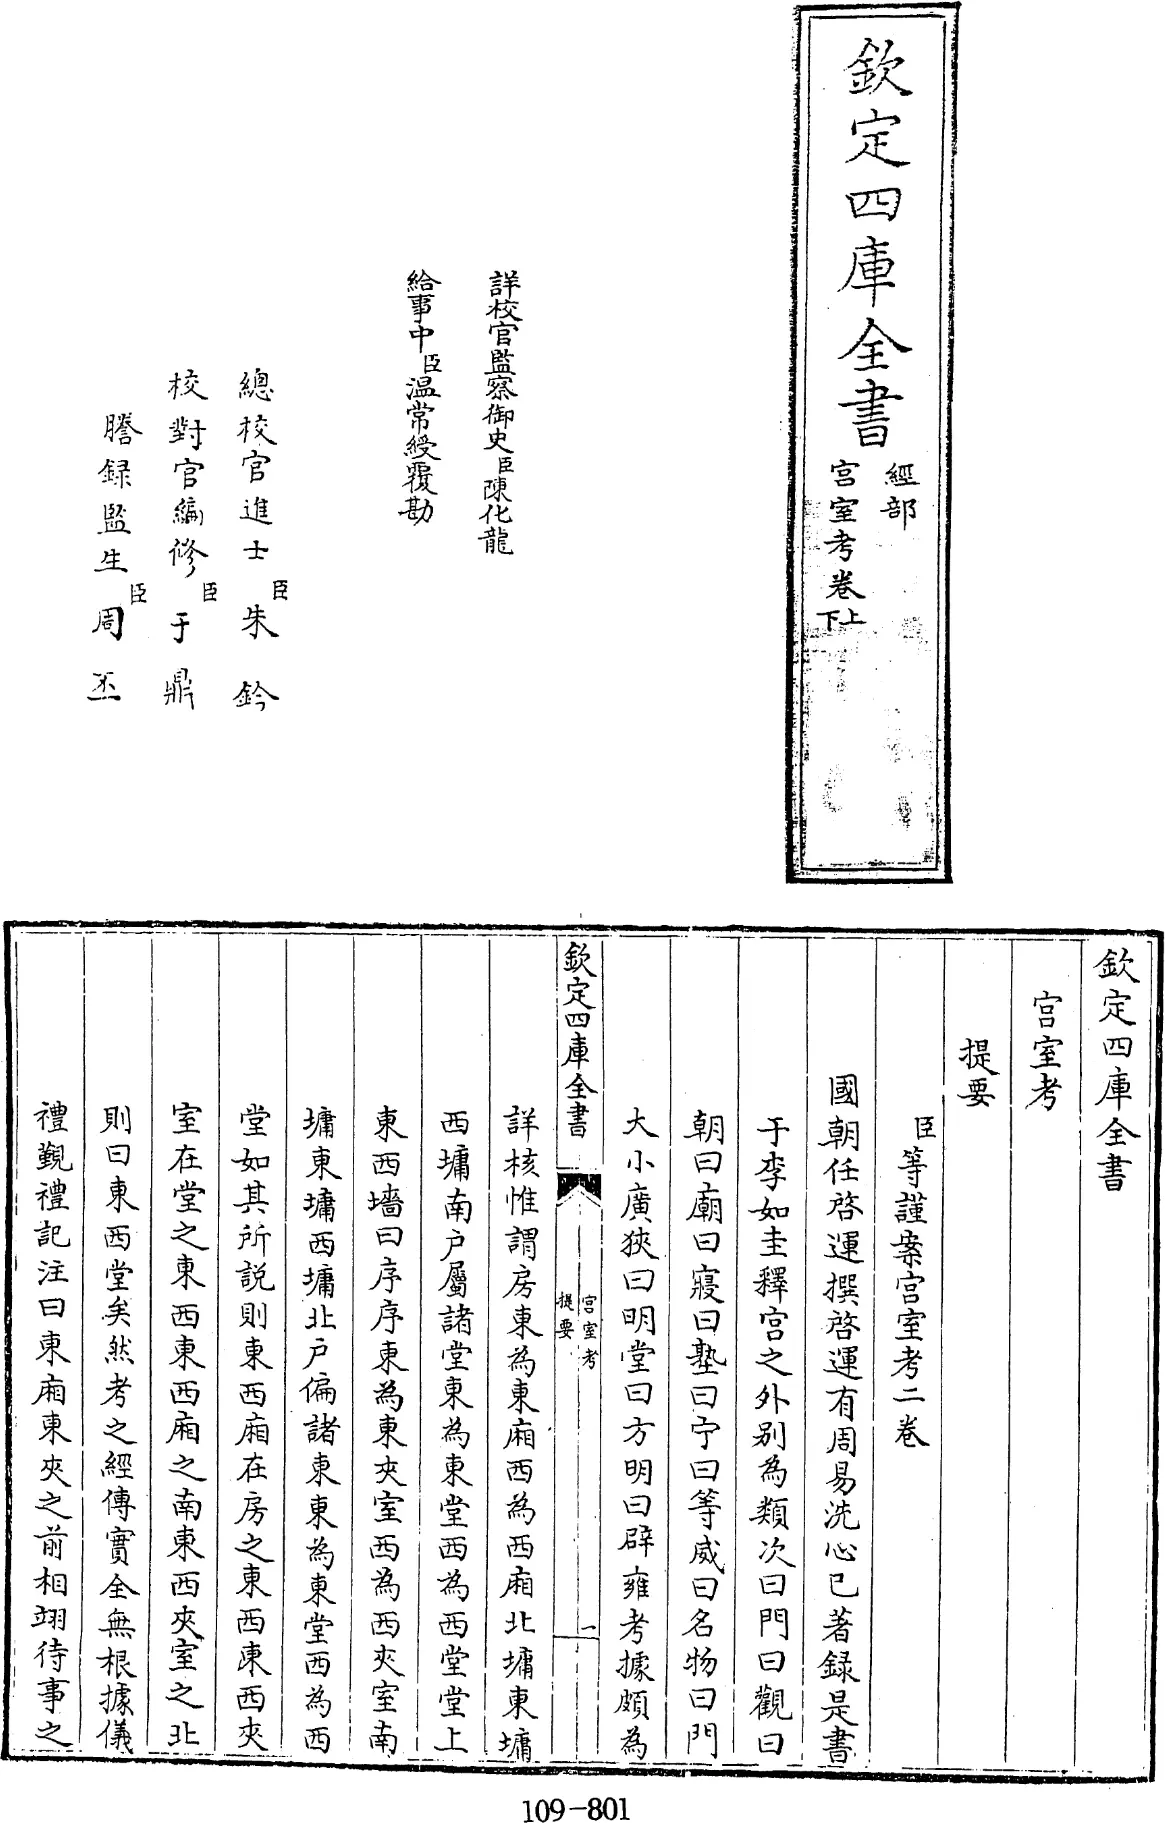 欽定四庫全書
經部
宫室考卷上下
詳校官監察御史臣陳化龍
給事中臣温常綬覆勘
總校官進士臣朱鈐
校對官編修臣于鼎
謄録監生臣周丕
欽定四庫全書
宫室考
提要
臣等謹案宫室考二卷
國朝任啓運撰啓運有周易洗心已著録是書
于李如圭釋宫之外别為類次曰門曰觀曰
朝曰廟曰寢曰塾曰宁曰等威曰名物曰門
大小廣狹曰明堂曰方明曰辟雍考據頗為
欽定四庫全書
宫室考
提要
一
詳核惟謂房東為東廂西為西廂北墉東墉
西墉南户屬諸堂東為東堂西為西堂堂上
東西墻曰序序東為東夾室西為西夾室南
墉東墉西墉北户偏諸東東為東堂西為西
堂如其所説則東西廂在房之東西東西夾
室在堂之東西東西廂之南東西夾室之北
則曰東西堂矣然考之經傳實全無根據儀
禮覲禮記注曰東廂東夾之前相翔待事之
109-801